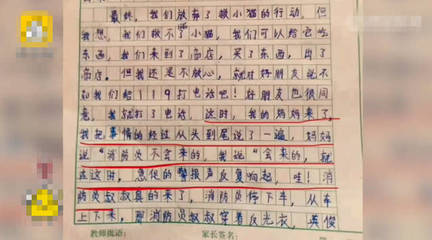 最终，我们放弃了救小猫的行动。但
我想，我们救不了小猫，我们可以给它吃
东西，我们来到了商店，买了东西，出了
商店。但我还是不放心，就对好朋友说不
如我们给119打电话吧！好朋友也很同
意，我就打了电话，这时，我的妈妈来了，
我把事情的经过从头到尾说了一遍，妈妈
说“消防员不会来的，我说“会来的，就
在这时，急促的警报声反复响起，哇！消
防员叔叔真的来了，消防员停下车，从车
上下来，那消防员叔叔穿着反光衣，英俊
教师批语： 家长签名：